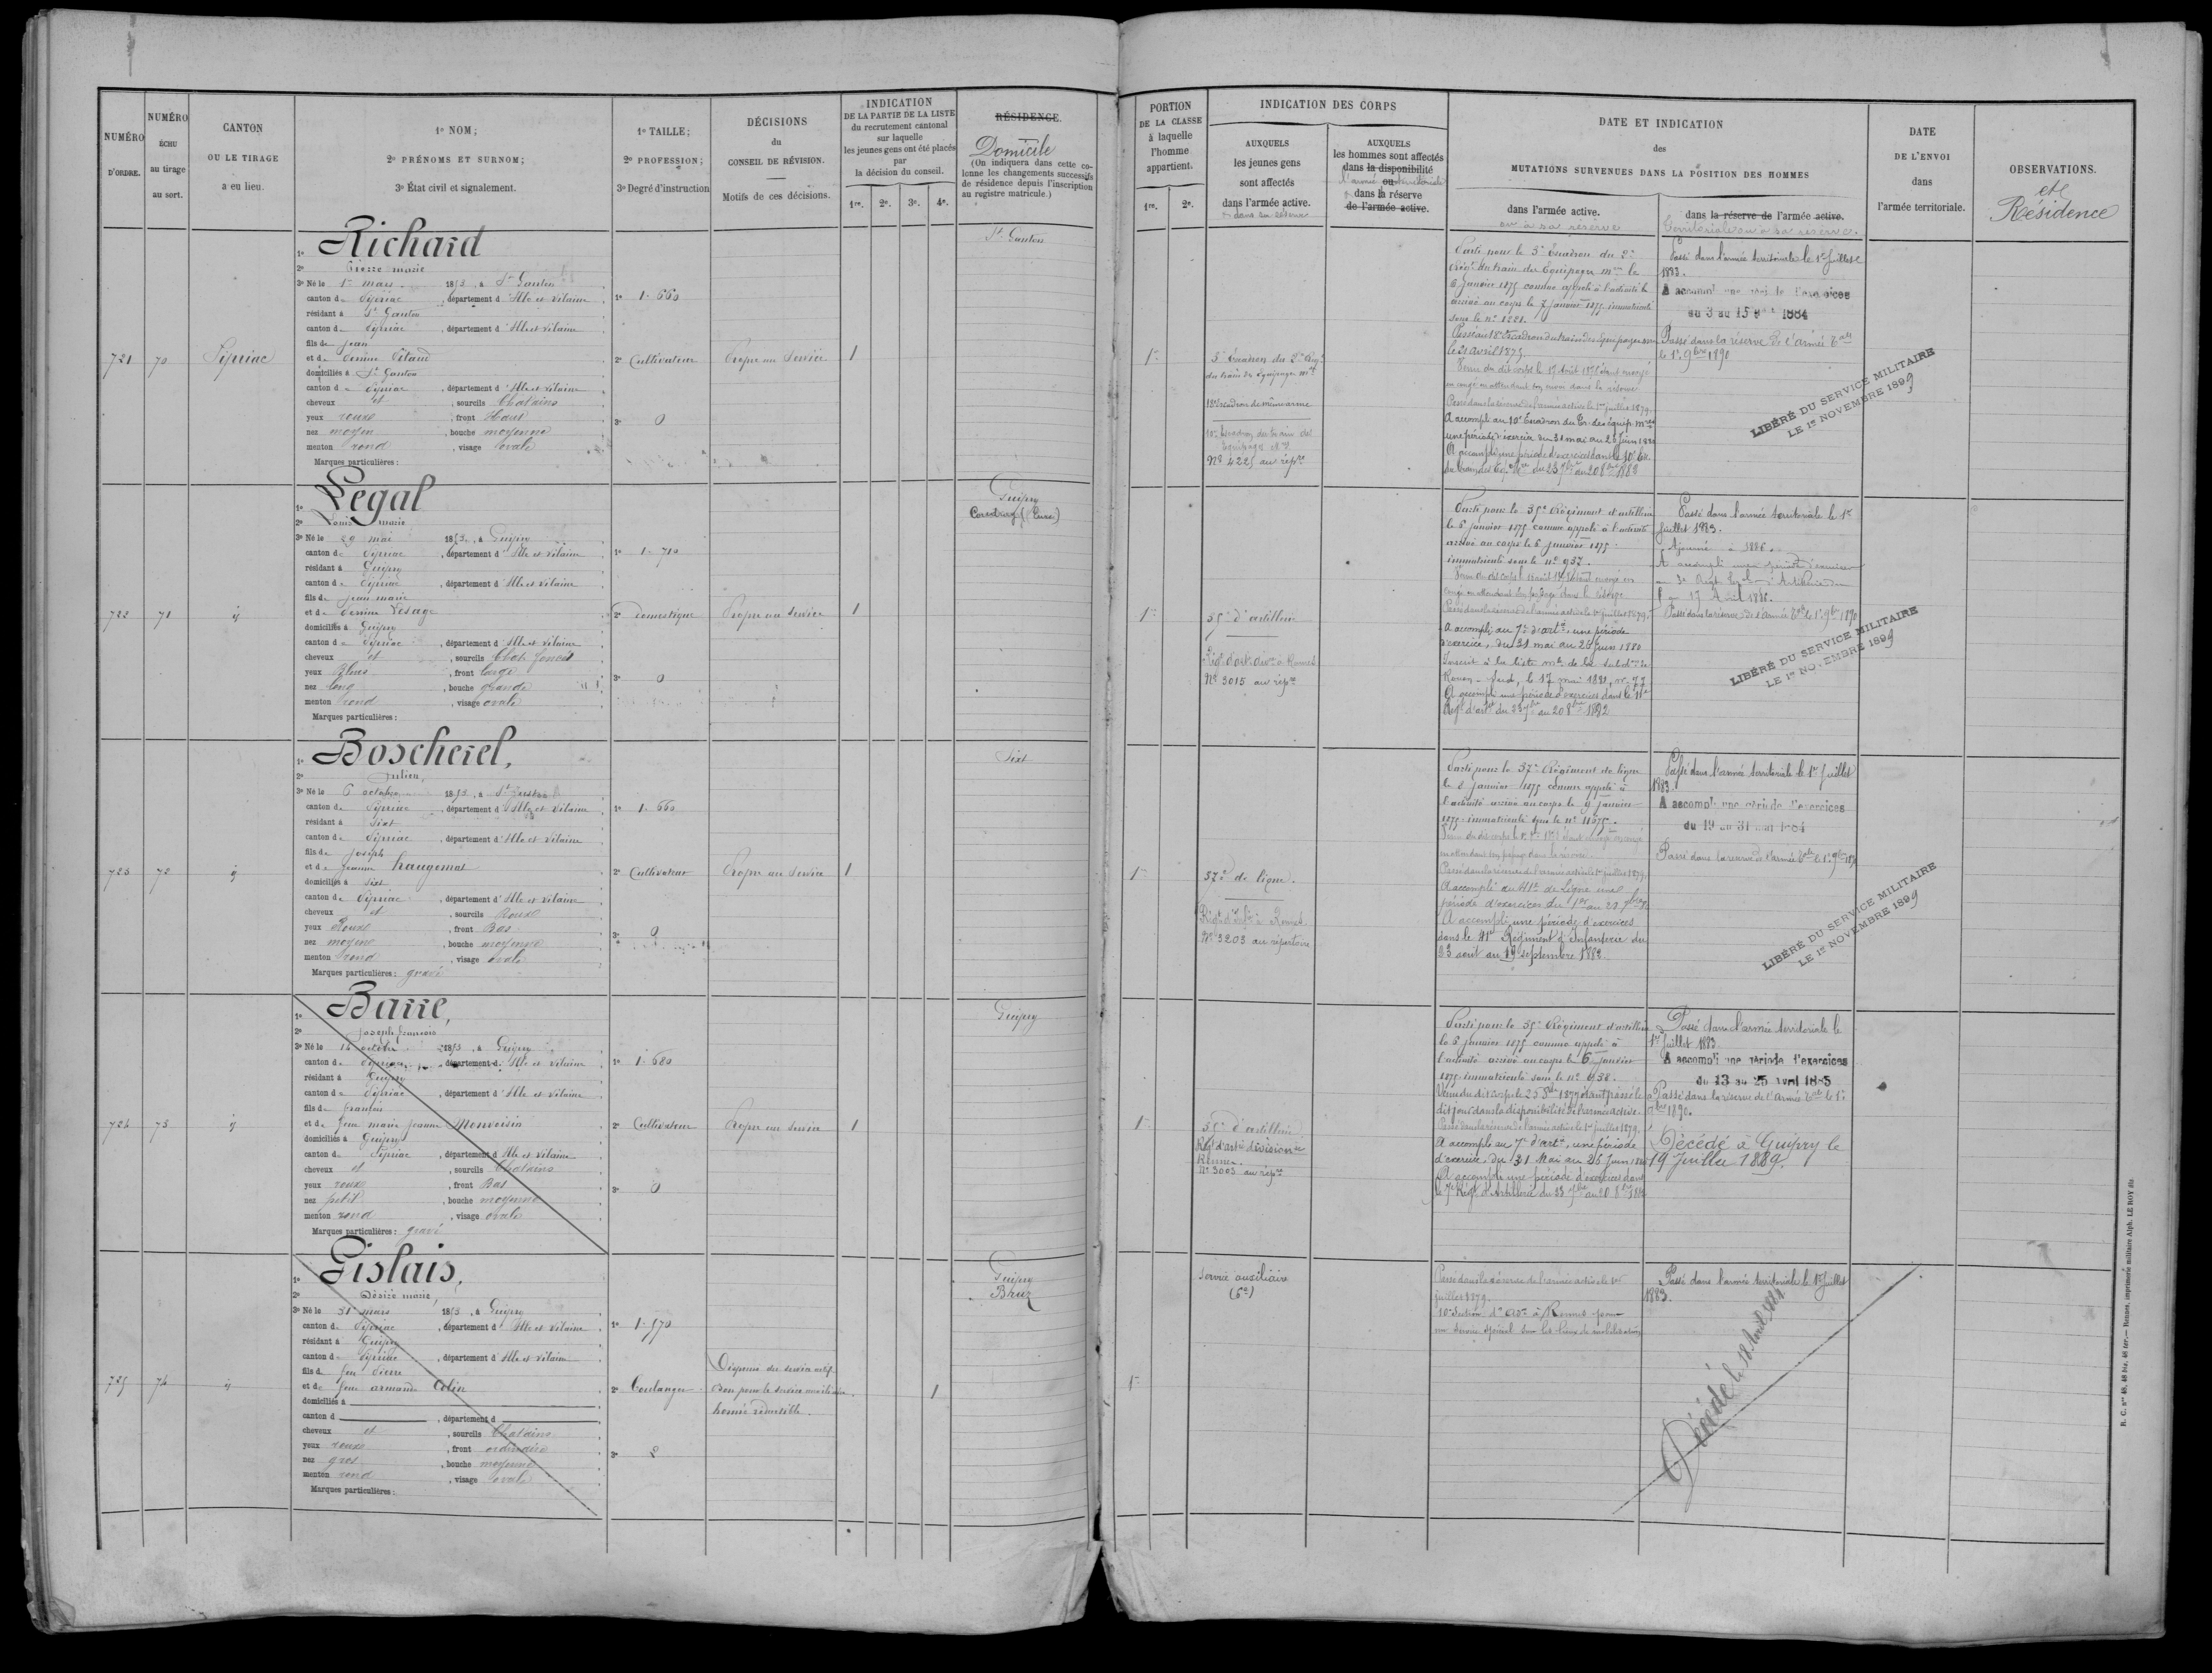 NUMÉRO
D'ORDRE.
NUMÉRO
ÉCHU
au tirage
au sort.
CANTON
OU LE TIRAGE
a eu lieu.
1º NOM;
2º PRÉNOMS ET SURNOM;
3º État civil et signalement.
1º TAILLE;
2º PROFESSION;
3º Degré d'instruction
DÉCISIONS
du
CONSEIL DE RÉVISION.
Motifs de ces décisions.
INDICATION
DE LA PARTIE DE LA LISTE
du recrutement cantonal
sur laquelle
les jeunes gens ont été placés
par
la décision du conseil.
1re. 2e. 3e. 4e.
RÉSIDENCE.
Domicile
(On indiquera dans cette co-
lonne les changements successifs
de résidence depuis l'inscription
au registre matricule.)
721
70
Pipriac
1º Richard
2º Pierre marie
3º Né le 1er mars 1853, à St Ganton
canton de Pipriac, département d'Ille et Vilaine
résidant à St Ganton
canton de Pipriac, département d'Ille et Vilaine
fils de Jean
et de Perrine
domiciliés à St Ganton
canton de Pipriac, département d'Ille et Vilaine
cheveux et, sourcils Chatains
yeux roux, front Haut
nez moyen, bouche moyenne
menton rond, visage ovale
Marques particulières :
1º 1.660
2º Cultivateur
3º 0
Propre au Service
1
St Ganton
722
71
id
1º Legal
2º Louis marie
3º Né le 29 mai 1853, à Guipry
canton de Pipriac, département d'Ille et Vilaine
résidant à Guipry
canton de Pipriac, département d'Ille et Vilaine
fils de Jean marie
et de Perrine Lesage
domiciliés à Guipry
canton de Pipriac, département d'Ille et Vilaine
cheveux et, sourcils Chat. foncés
yeux Bleus, front large
nez long, bouche grande
menton rond, visage ovale
Marques particulières :
1º 1.710
2º Domestique
3º 0
Propre au Service
1
Guipry
(Eure)
723
72
id
1º Boscherel,
2º Julien,
3º Né le 6 octobre 1853, à St
canton de Pipriac, département d'Ille et Vilaine
résidant à Sixt
canton de Pipriac, département d'Ille et Vilaine
fils de Joseph
et de Jeanne
domiciliés à Sixt
canton de Pipriac, département d'Ille et Vilaine
cheveux et, sourcils Roux
yeux Roux, front Bas
nez moyen, bouche moyenne
menton rond, visage ovale
Marques particulières : gravé
1º 1.660
2º Cultivateur
3º 0
Propre au Service
1
Sixt
724
73
id
1º Barre,
2º Joseph françois
3º Né le 16 octobre 1853, à Guipry
canton de Pipriac, département d'Ille et Vilaine
résidant à Guipry
canton de Pipriac, département d'Ille et Vilaine
fils de françois
et de feue marie jeanne Monvoisin
domiciliés à Guipry
canton de Pipriac, département d'Ille et Vilaine
cheveux et, sourcils Chatains
yeux roux, front Bas
nez petit, bouche moyenne
menton rond, visage ovale
Marques particulières : gravé
1º 1.680
2º Cultivateur
3º 0
Propre au Service
1
Guipry
725
74
id
1º Gislais,
2º Désiré marie,
3º Né le 31 mars 1853, à Guipry
canton de Pipriac, département d'Ille et Vilaine
résidant à Guipry
canton de Pipriac, département d'Ille et Vilaine
fils de feu Pierre
et de feue armande Colin
domiciliés à
canton d, département d
cheveux et, sourcils Chatains
yeux roux, front ordinaire
nez gros, bouche moyenne
menton rond, visage ovale
Marques particulières :
1º 1.570
2º Boulanger
3º 2
Dispensé du service actif
Bon pour le service auxiliaire
hernie réductible.
1
Guipry
Bruz
PORTION
DE LA CLASSE
à laquelle
l'homme
appartient.
1re. 2e.
INDICATION DES CORPS
AUXQUELS
les jeunes gens
sont affectés
dans l'armée active.
ou dans sa réserve
AUXQUELS
les hommes sont affectés
dans la disponibilité
ou
l'armée territoriale
dans la réserve
de l'armée active.
DATE ET INDICATION
des
MUTATIONS SURVENUES DANS LA POSITION DES HOMMES
dans l'armée active.
ou à sa réserve
dans la réserve de l'armée active.
territoriale ou à sa réserve.
DATE
DE L'ENVOI
dans
l'armée territoriale.
OBSERVATIONS.
et
Résidence
1re
5e Escadron du 2e Régt
du train des Equipages mres
10e Escadron de même arme
10e Escadron du train des
Equipages
Nº 4225 au répre
Parti pour le 5e Escadron du 2e
Régt du train des Equipages mres le
6 janvier 1875 comme appelé à l'activité
arrivé au corps le 7 janvier 1875 immatriculé
sous le nº 1221.
Passé au 18e Escadron du train des Equipages
le 21 avril 1875
en congé en attendant son envoi dans la réserve
Passé dans la réserve de l'armée active le 1er juillet 1879.
A accompli au 10e Escadron du Tr. des équip. mres
une période d'exercices du 31 mai au 26 juin 1880
A accompli une période d'exercices dans le 10e
du train des Eq. du 23 7bre au 20 8bre 1882
Passé dans l'armée territoriale le 1er Juillet
1883.
A accompli une période d'exercices
du 3 au 15 1884
Passé dans la réserve de l'armée Tale
le 1er 9bre 1890
LIBÉRÉ DU SERVICE MILITAIRE
LE 1er NOVEMBRE 1899
1re
35e d'artillerie
Régt d'art. divre à Rennes
Nº 3015 au répre
Parti pour le 35e Régiment d'artillerie
le 6 janvier 1875 comme appelé à l'activité
arrivé au corps le 6 janvier 1875.
immatriculé sous le nº 937.
congé en attendant son passage dans la réserve
Passé dans la réserve de l'armée active le 1er juillet 1879.
A accompli au 7e d'artie, une période
d'exercices, du 31 mai au 26 juin 1880
Inscrit à la liste mle de la subdon de
Rouen-Sud, le 17 mai 1881, nº 77
A accompli une période d'exercices dans le 11e
Régt d'artie du 23 7bre au 20 8bre 1882
Passé dans l'armée territoriale le 1er
Juillet 1883.
Ajourné à 1886.
A accompli une période d'exercices
au 3e Régt d'Artillerie du
au 17 Avril 1886.
Passé dans la réserve de l'armée Tale le 1er 9bre 1890
LIBÉRÉ DU SERVICE MILITAIRE
LE 1er NOVEMBRE 1899
1re
37e de ligne.
Régt d'Infie à Rennes
Nº 3203 au répertoire
Parti pour le 37e Régiment de ligne
le 8 janvier 1875 comme appelé à
l'activité arrivé au corps le 9 janvier
1875 immatriculé sous le nº
en attendant son passage dans la réserve.
Passé dans la réserve de l'armée active le 1er juillet 1879.
A accompli au 41e de Ligne une
période d'exercices du 1er au
A accompli une période d'exercices
dans le 41e Régiment d'Infanterie du
23 août au 19 septembre 1882
Passé dans l'armée territoriale le 1er Juillet
1883.
A accompli une période d'exercices
du 19 au 31 mai 1884
Passé dans la réserve de l'armée Tale le 1er 9bre 1890
LIBÉRÉ DU SERVICE MILITAIRE
LE 1er NOVEMBRE 1899
1re
35e d'artillerie
Régt d'artie divisionre
Rennes.
Nº 3003 au répre
Parti pour le 35e Régiment d'artillerie
le 6 janvier 1875 comme appelé à
l'activité arrivé au corps le 6 janvier
1875 immatriculé sous le nº 938.
dit jour dans la disponibilité de l'armée active.
Passé dans la réserve de l'armée active le 1er juillet 1879.
A accompli au 7e d'artie, une période
d'exercices du 31 Mai au 26 Juin 1880
A accompli une période d'exercices dans
le 7e Régt d'Artillerie du 23 7bre au 20 8bre 1882
Passé dans l'armée territoriale le
1er Juillet 1883.
A accompli une période d'exercices
du 13 au 25 avril 1885
Passé dans la réserve de l'armée Tale le 1er
9bre 1890.
Décédé à Guipry le
19 Juillet 1889.
1re
Service auxiliaire
(6e)
Passé dans la réserve de l'armée active le 1er
juillet 1879.
10e Section d' à Rennes pour
un service spécial sur les lieux de mobilisation
Passé dans l'armée territoriale le 1er Juillet
1883.
Décédé le 18 Avril
R. C. nos 48, 48 bis, 48 ter.— Rennes, imprimerie militaire Alph. LE ROY fils